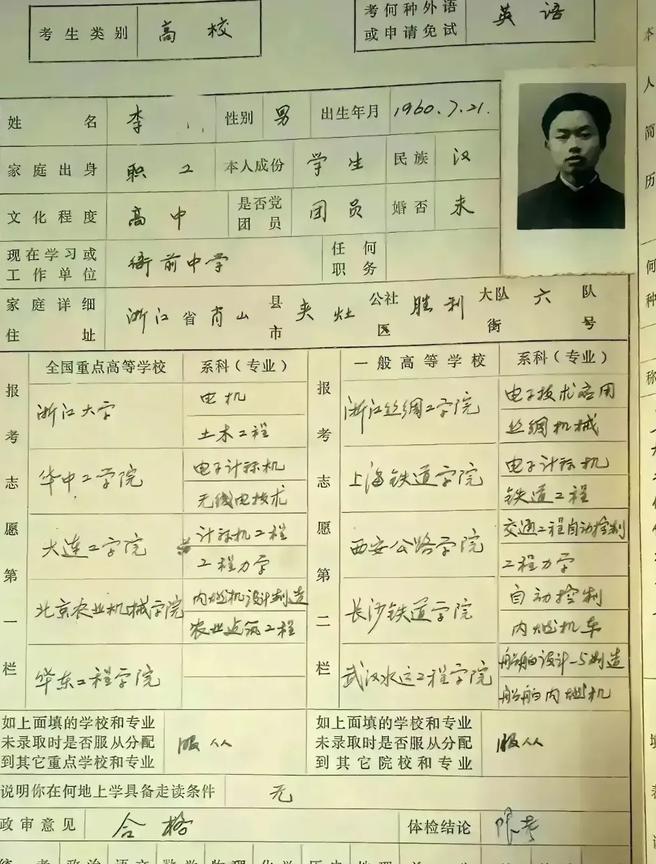 考生类别 高校 考何种外语或申请免试 英语
姓名 李 性别 男 出生年月 1960.7.21.
家庭出身 职工 本人成份 学生 民族 汉
文化程度 高中 是否党团员 团员 婚否 未
现在学习或工作单位 衙前中学 任何职务
家庭详细住址 浙江省肖山县市夹灶公社区胜利大队街六队号
报考志愿第一栏 全国重点高等学校 系科（专业） 报考志愿第二栏 一般高等学校 系科（专业）
浙江大学 电机 浙江丝绸工学院 电子技术应用
土木工程 丝绸机械
华中工学院 电子计称机 上海铁道学院 电子计称机
无线电技术 铁道工程
大连工学院 计称机工程 西安公路学院 交通工程自动控制
工程力学 工程力学
北京农业机械学院 内燃机设计制造 长沙铁道学院 自动控制
农业建筑工程 内燃机车
华东工程学院 武汉水运工程学院 船舶设计与制造
船舶内燃机
如上面填的学校和专业 如上面填的学校和专业
未录取时是否服从分配 服从 未录取时是否服从分配 服从
到其它重点学校和专业 到其它院校和专业
说明你在何地上学具备走读条件 无
政审意见 合格 体检结论 限考
本人简历
何种
称